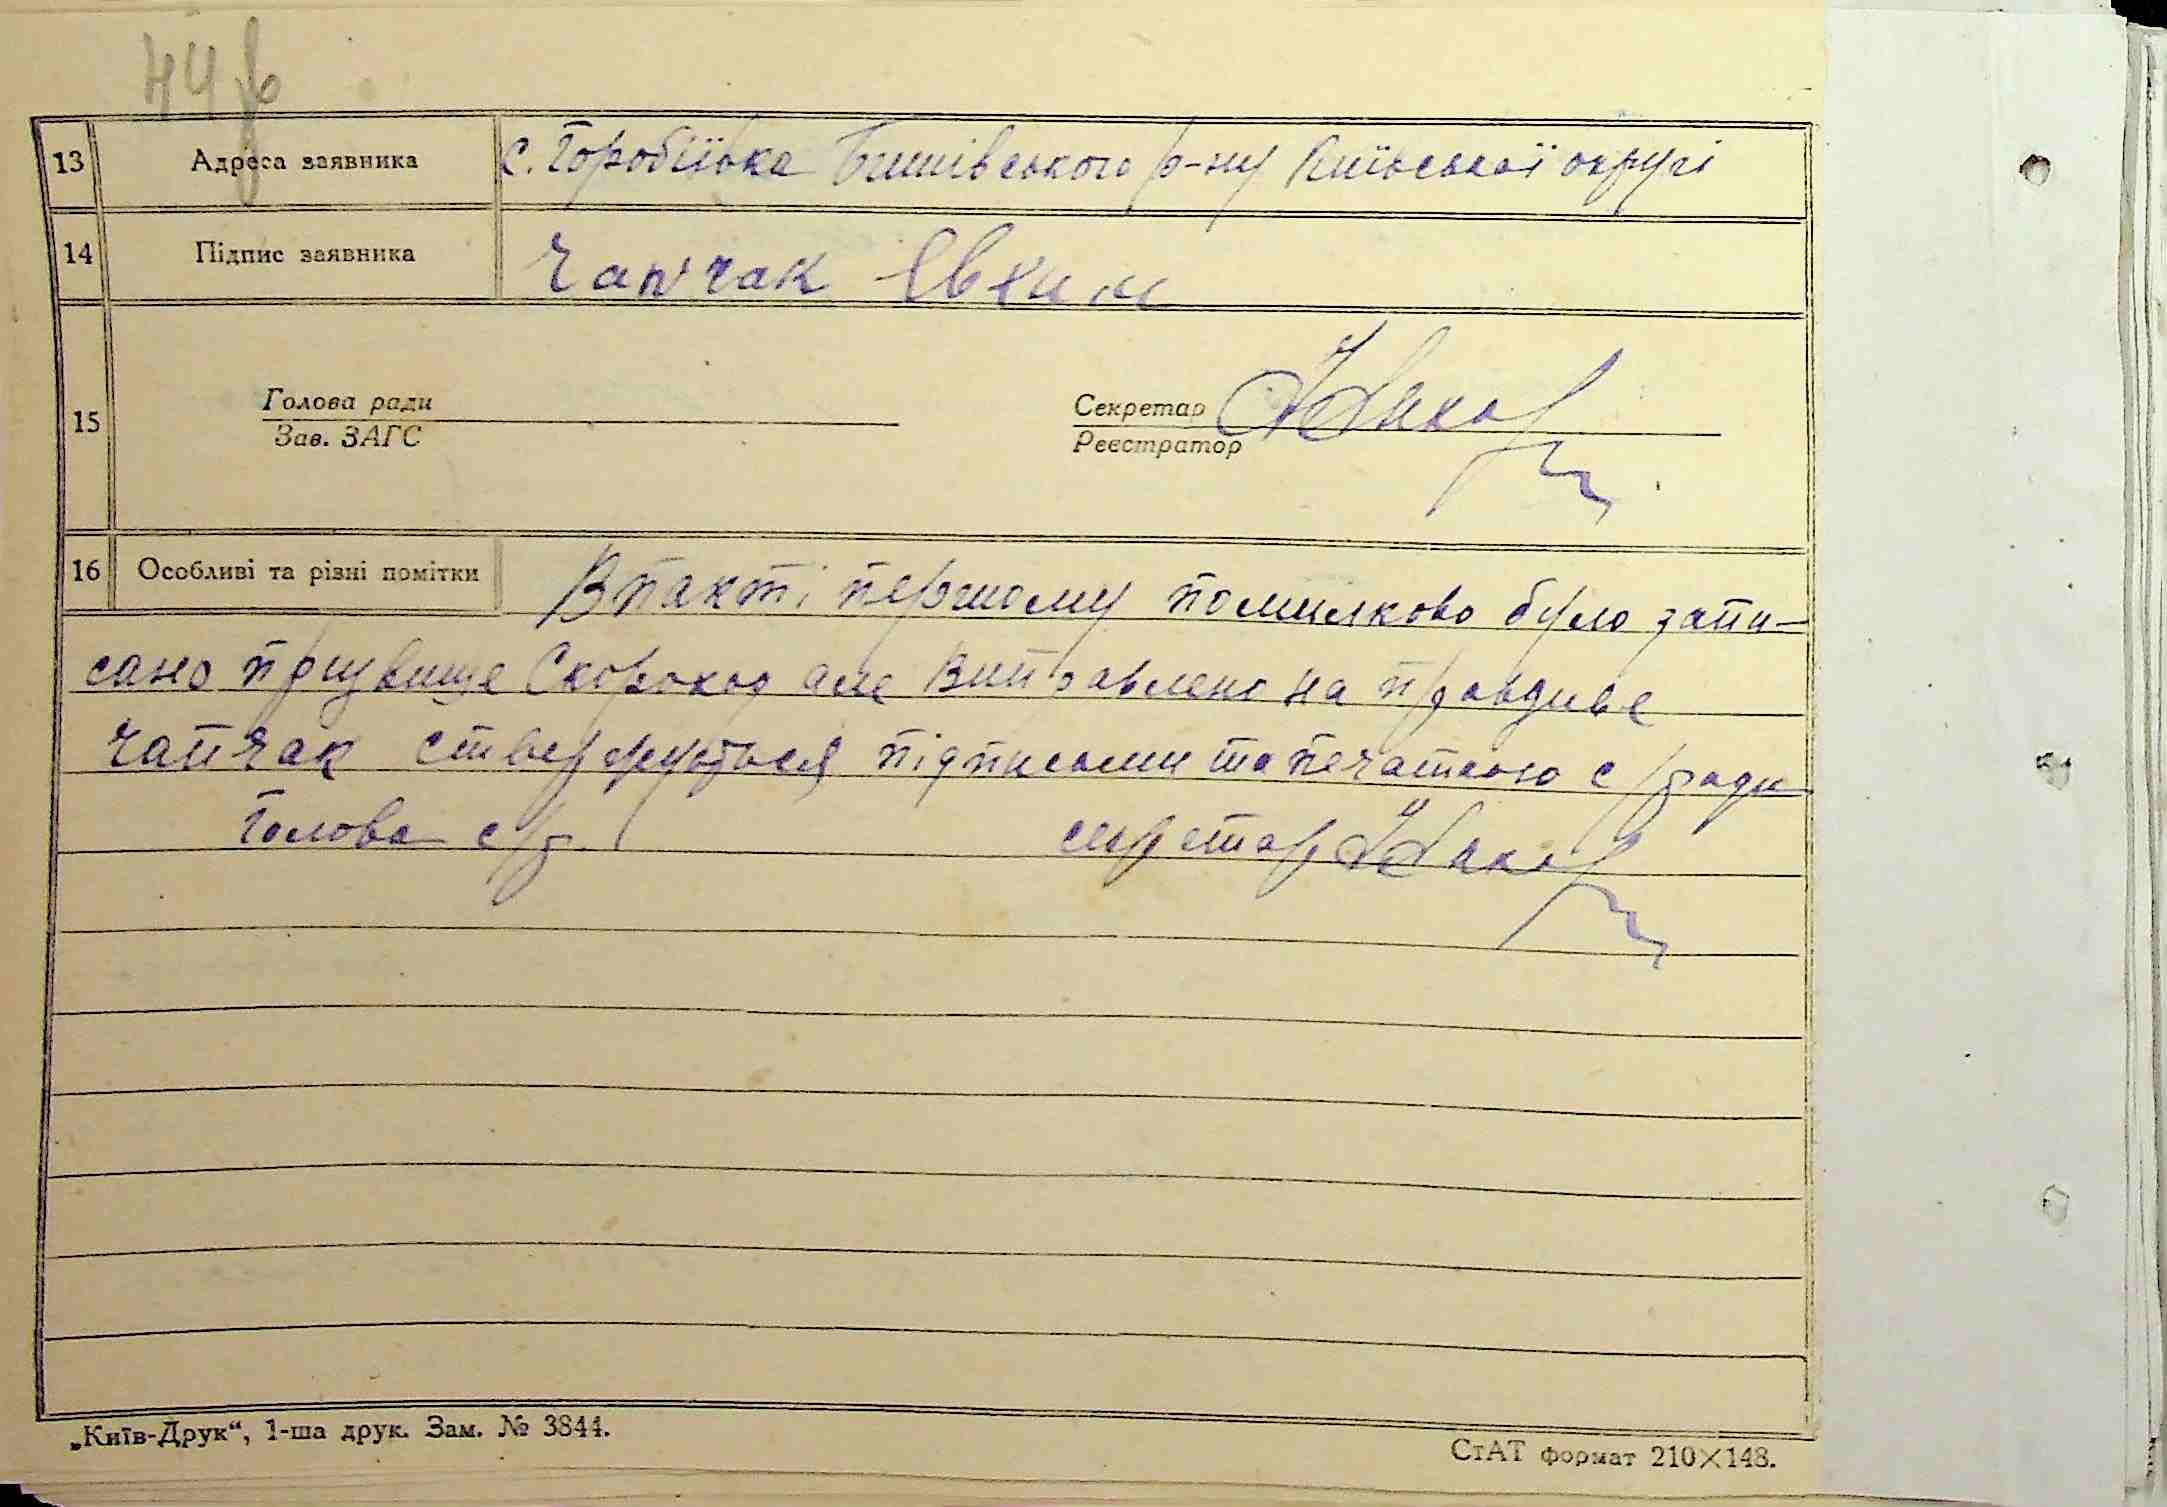 44
13 Адреса заявника с. Горобіївка Бишівського р-ну Київської округі
14 Підпис заявника Чапчак Євхим
15 Голова ради
Зав. ЗАГС
Секретар
Реєстратор
16 Особливі та різні помітки В пакті першому помилково було запи-
сано прізвище Скороход але Виправлено на правдиве
Чапчак стверджується підписами та печаткою с/ради
Голова с/р. секретар
„Київ-Друк“, 1-ша друк. Зам. № 3844.
СтАТ формат 210×148.